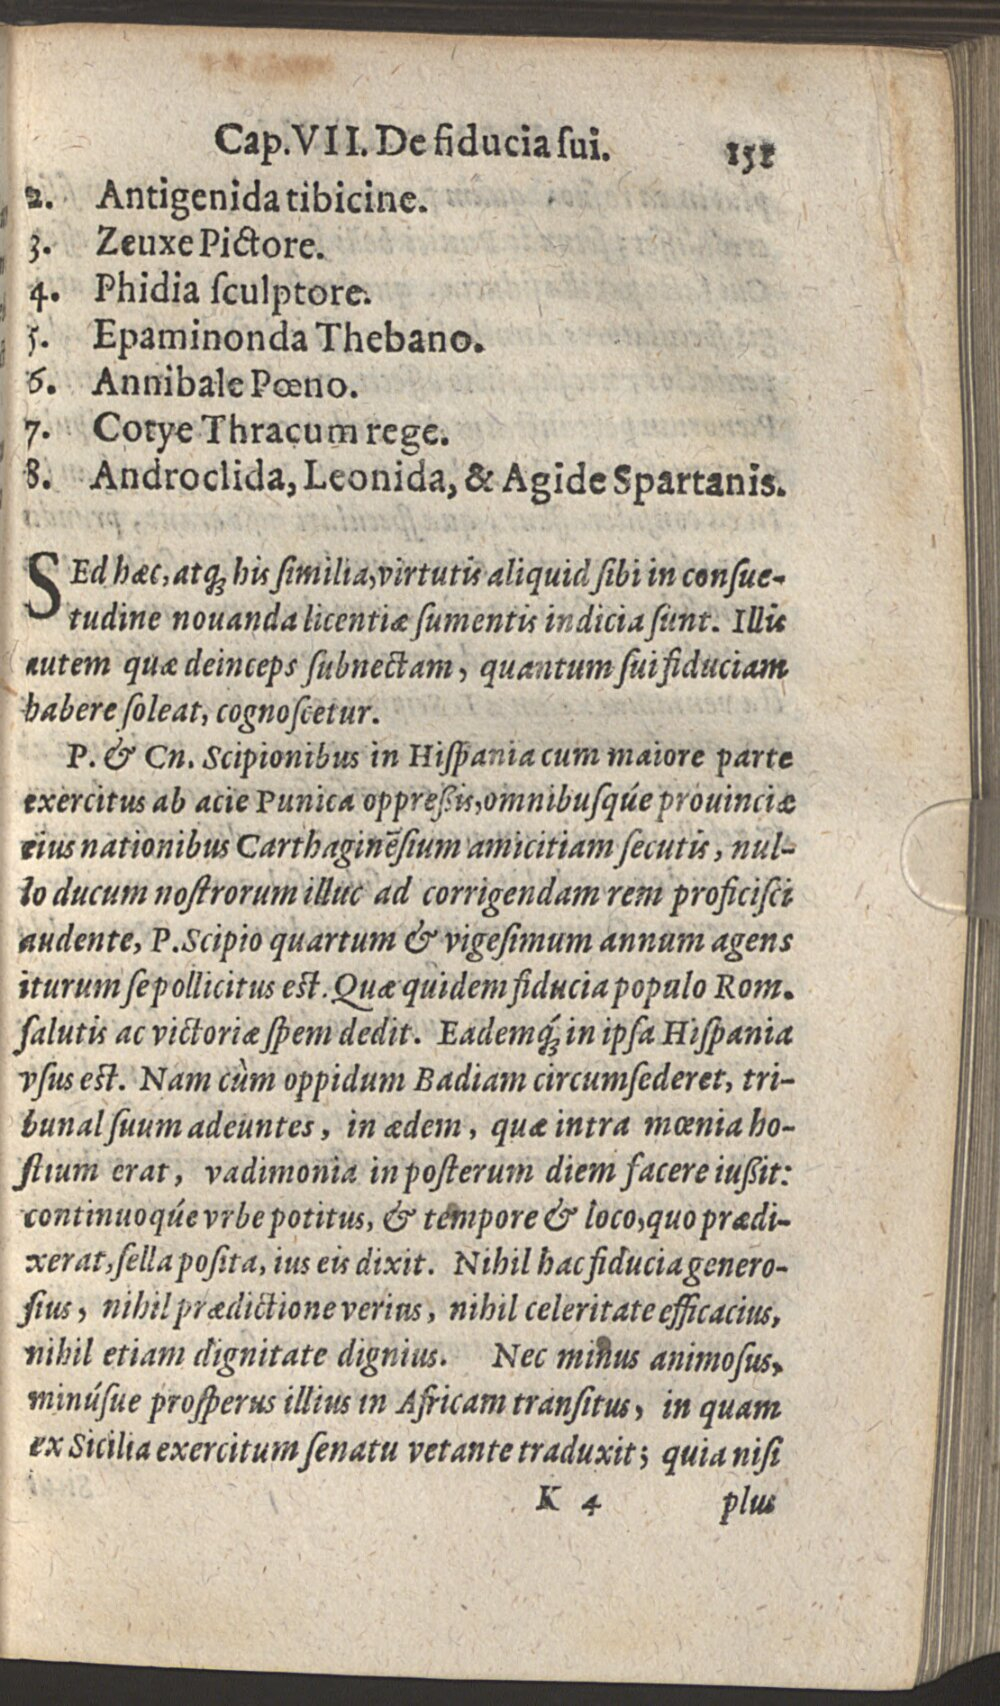 Cap. VII. De fiducia ſui. 151
2. Antigenida tibicine.
3. Zeuxe Pictore.
4. Phidia ſculptore.
5. Epaminonda Thebano.
6. Annibale Pœno.
7. Cotye Thracum rege.
8. Androclida, Leonida, & Agide Spartanis.
SEd hæc, atq; his ſimilia, virtutis aliquid ſibi in conſue-
tudine nouanda licentiæ ſumentis indicia ſunt. Illis
autem quæ deinceps ſubnectam, quantum ſui fiduciam
habere ſoleat, cognoſcetur.
P. & Cn. Scipionibus in Hiſpania cum maiore parte
exercitus ab acie Punica oppreßis, omnibuſqúe prouinciæ
eius nationibus Carthaginēſium amicitiam ſecutis, nul-
lo ducum noſtrorum illuc ad corrigendam rem proficiſci
audente, P. Scipio quartum & vigeſimum annum agens
iturum ſe pollicitus eſt. Quæ quidem fiducia populo Rom.
ſalutis ac victoriæ ſpem dedit. Eademq́; in ipſa Hiſpania
vſus eſt. Nam cùm oppidum Badiam circumſederet, tri-
bunal ſuum adeuntes, in ædem, quæ intra mœnia ho-
ſtium erat, vadimonia in poſterum diem facere iußit:
continuoqúe vrbe potitus, & tempore & loco, quo prædi-
xerat, ſella poſita, ius eis dixit. Nihil hac fiducia genero-
ſius, nihil prædictione verius, nihil celeritate efficacius,
nihil etiam dignitate dignius. Nec minus animoſus,
minúſue proſperus illius in Africam tranſitus, in quam
ex Sicilia exercitum ſenatu vetante traduxit; quia niſi
K 4 plus